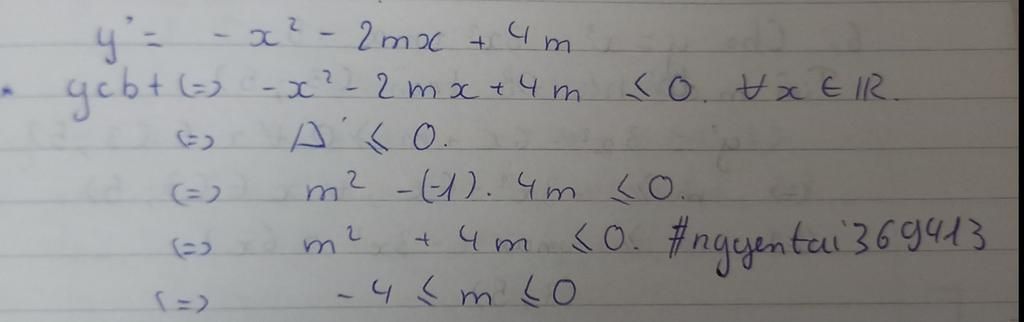 y' = -x² - 2mx + 4m
ycbt (=) -x² - 2mx + 4m ≤ 0. ∀x ∈ R.
(=) Δ' ≤ 0.
(=) m² - (-1). 4m ≤ 0.
(=) m² + 4m ≤ 0. #ngyentai369413
(=) -4 ≤ m ≤ 0